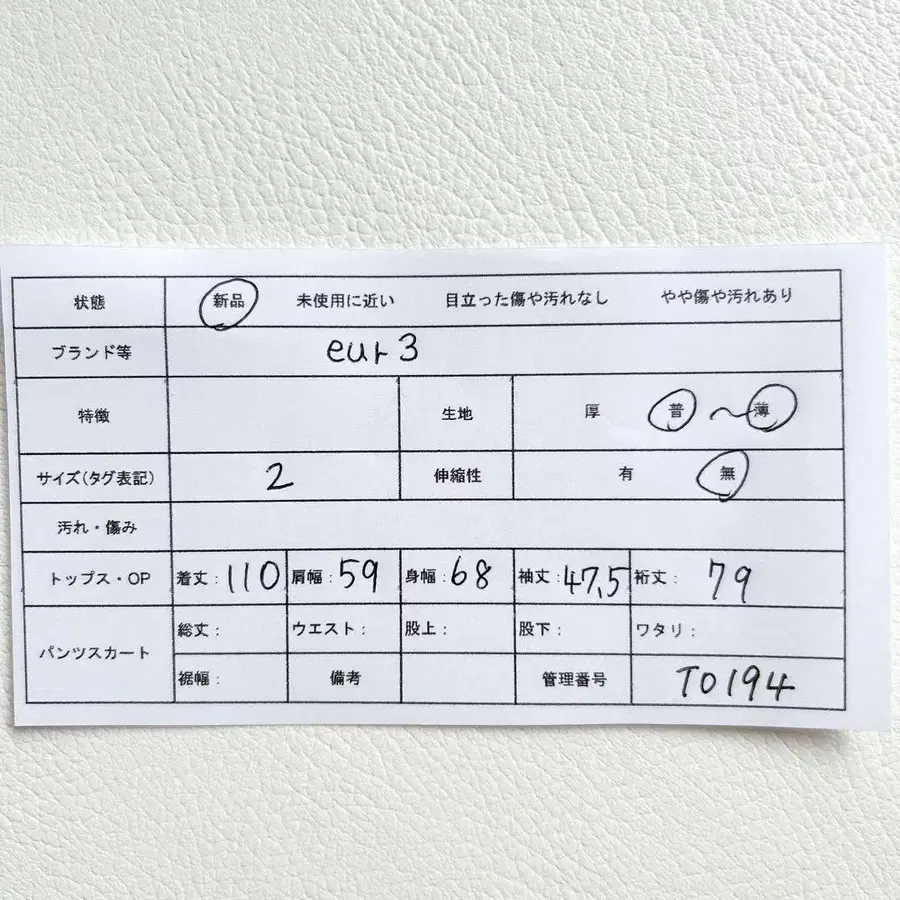 状態 新品 未使用に近い 目立った傷や汚れなし やや傷や汚れあり
ブランド等 eur3
特徴 生地 厚 普 〜 薄
サイズ(タグ表記) 2 伸縮性 有 無
汚れ・傷み
トップス・OP 着丈:110 肩幅:59 身幅:68 袖丈:47.5 裄丈:79
パンツスカート 総丈: ウエスト: 股上: 股下: ワタリ:
裾幅: 備考 管理番号 T0194